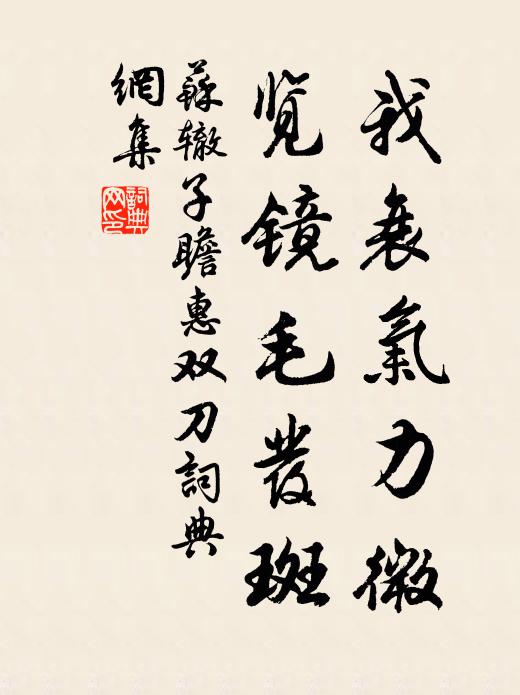 我衰氣力微
览镜毛發斑
蘇辙子瞻惠双刀詞典
網集
詞典
网印